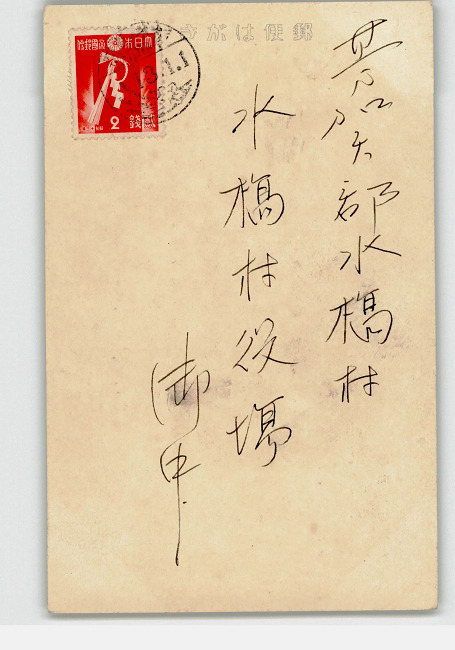 郵便はがき
大日本帝國郵便
2 銭
芳賀郡水橋村
水橋村役場
御中